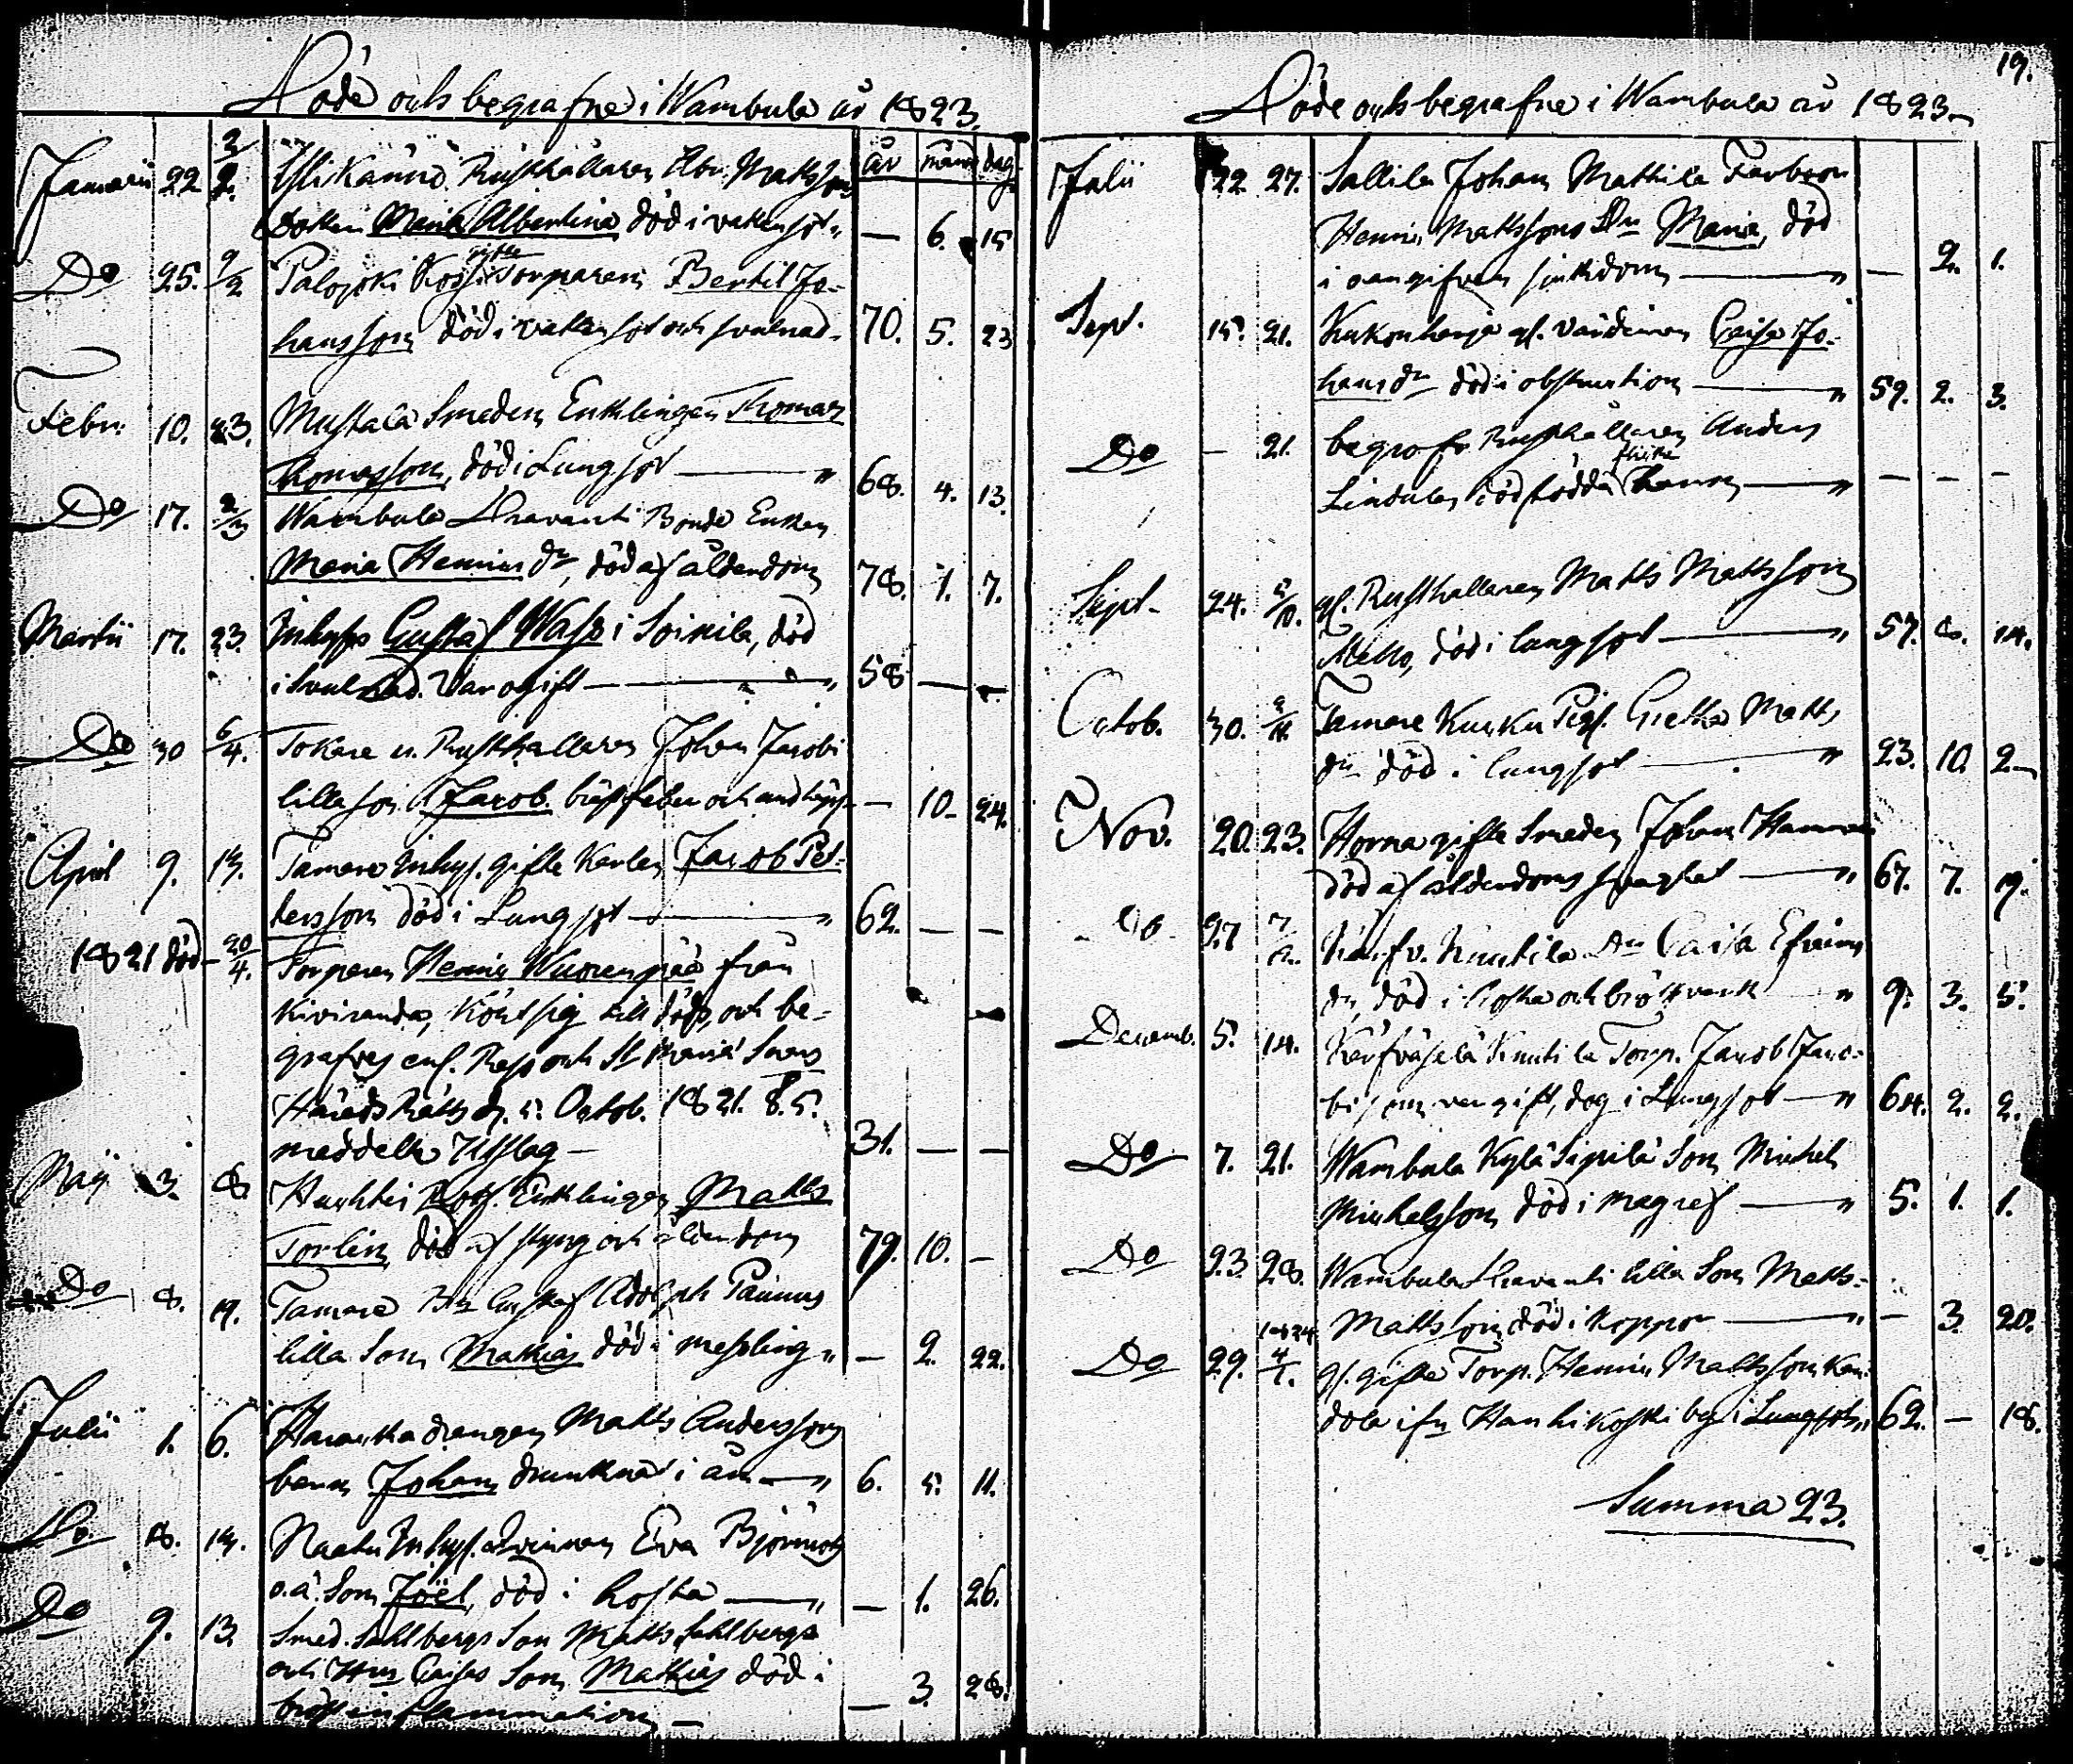 Döde och begrafne i Wambula år 1823.
år månad dag
Januarii 22 2/2. Yli Kännö Rusthållaren Abr. Mattssons
dotter Maria Albertina död i vattusot " — 6. 15
Do 25. 9/2 Palojoki gifte Torparen Bertil Jo-
hansson död i vattusot och svulnad. 70. 5. 23
Febr. 10. 23. Mustala Smeden Enklingen Thomas
Thomasson, död i Lungsot — " 68. 4. 13.
Do 17. 2/3 Wambula Bonde Enkan
Maria Henricsdr, död af ålderdom 78. 1. 7.
Martii 17. 23. Inhyses Gustaf Wass i Soinila, död
i Svulnad. Var ogift — " 58 — —
Do 30 6/4. Tokare u. Rusthållaren Johan Jacobs
lilla son Jacob. bröstfeber och andtäppa — 10 24.
April 9. 13. Tamare Inhys. gifte Karlen Jacob Pet-
tersson död i Lungsot — " 62. — —
1821 död — 20/4. Torparen Henric Wuorenpää från
Kiviranda, köllt sig till döds, och be-
grafves enl. Resp och St Mariæ Socns
Härads Rätts d. 5. Octob. 1821. §. 5.
meddelte Utslag — 31. — —
Maji 3. 8. Huhtei Enklingen Matts
Torlin död af styng och ålderdom 79. 10. —
Do 8. 19. Tamare Gustaf Adolph Paunus
lilla Son Mathias död i messling " — 2. 22.
Julii 1. 6. Harauka drengen Matts Anderssons
barn Johan drunknad i ån — " 6. 5. 11.
Do 8. 13. Inhys. qvinnan Eva Björnsdr
o.ä. Son Joël, död i hosta — " — 1. 26.
Do 9. 13. Smed. Sahlbergs Son Matts Sahlbergs
och Hus Caisas Son Mathias död i
bröstinflammation — — 3. 28.
19.
Döde och begrafne i Wambula år 1823.
Julii 22 27. Sallila Johan Mattila Farbror
Henric Mattssons Dr Maria, död
i oangifven sjukdom — " — 2. 1.
Sept. 15. 21. Kukonharja gl. värdinnan Caisa Jo-
hansdr död i obstruction — " 59. 2. 3.
Do — 21. begrofs Rusthållaren Anders
Lindulas dödfödda flicka — " — — —
Sept. 24. 5/10. gl. Rusthållaren Matts Mattsson
Mello, död i lungsot — " 57. 8. 14.
Octob. 30. 2/11. Tamare Kurku Pig. Gretha Matts
dr död i lungsot — " 23. 10. 2
Nov. 20. 23. Horna gifte Smeden Johan
död af ålderdoms svaghet — " 67. 7. 19.
Do 27 7/12. Knutila Dr Caisa Efraims
dr, död i hosta och bröstverk " 9. 3. 5.
Decemb. 5. 14. Kärfväselä Knutila Torp. Jacob Jaco-
bison var gift, dog i Lungsot — " 64. 2. 2.
Do 7. 21. Wambula Kylä Sipilä Son Michel
Michelsson död i magref — " 5. 1. 1.
Do 23. 28. Wambula lilla Son Matts
Mattsson död i koppor — " — 3. 20.
Do 29. 1824 4/1. gl. gifte Torp. Henric Mattsson Kan-
dola ifrn Hanhikoski by i Lungsot " 62. — 18.
Summa 23.